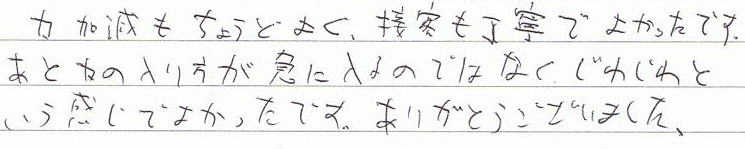 力加減もちょうどよく、接客も丁寧でよかったです。
あと力の入り方が急に入るのではなく、じわじわと
いう感じでよかったです。ありがとうございました。